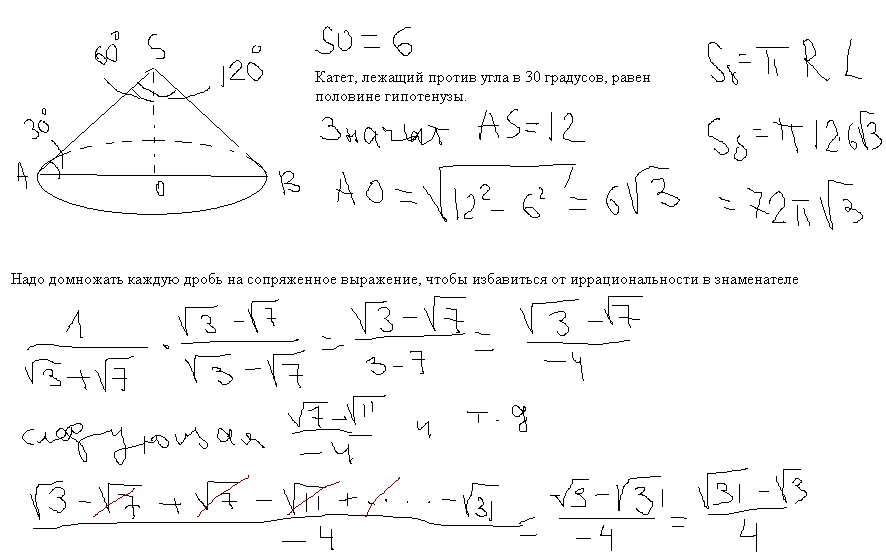 S
60° 120°
30°
A O B
SO = 6
Катет, лежащий против угла в 30 градусов, равен
половине гипотенузы.
Значит AS = 12
AO = √(12² - 6²) = 6√3
Sб = π R L
Sб = π 12·6√3
= 72π√3
Надо домножать каждую дробь на сопряженное выражение, чтобы избавиться от иррациональности в знаменателе
1/(√3 + √7) · (√3 - √7)/(√3 - √7) = (√3 - √7)/(3 - 7) = (√3 - √7)/(-4)
следующая (√7 - √11)/(-4) и т.д
(√3 - √7 + √7 - √11 + ... - √31)/(-4) = (√3 - √31)/(-4) = (√31 - √3)/4